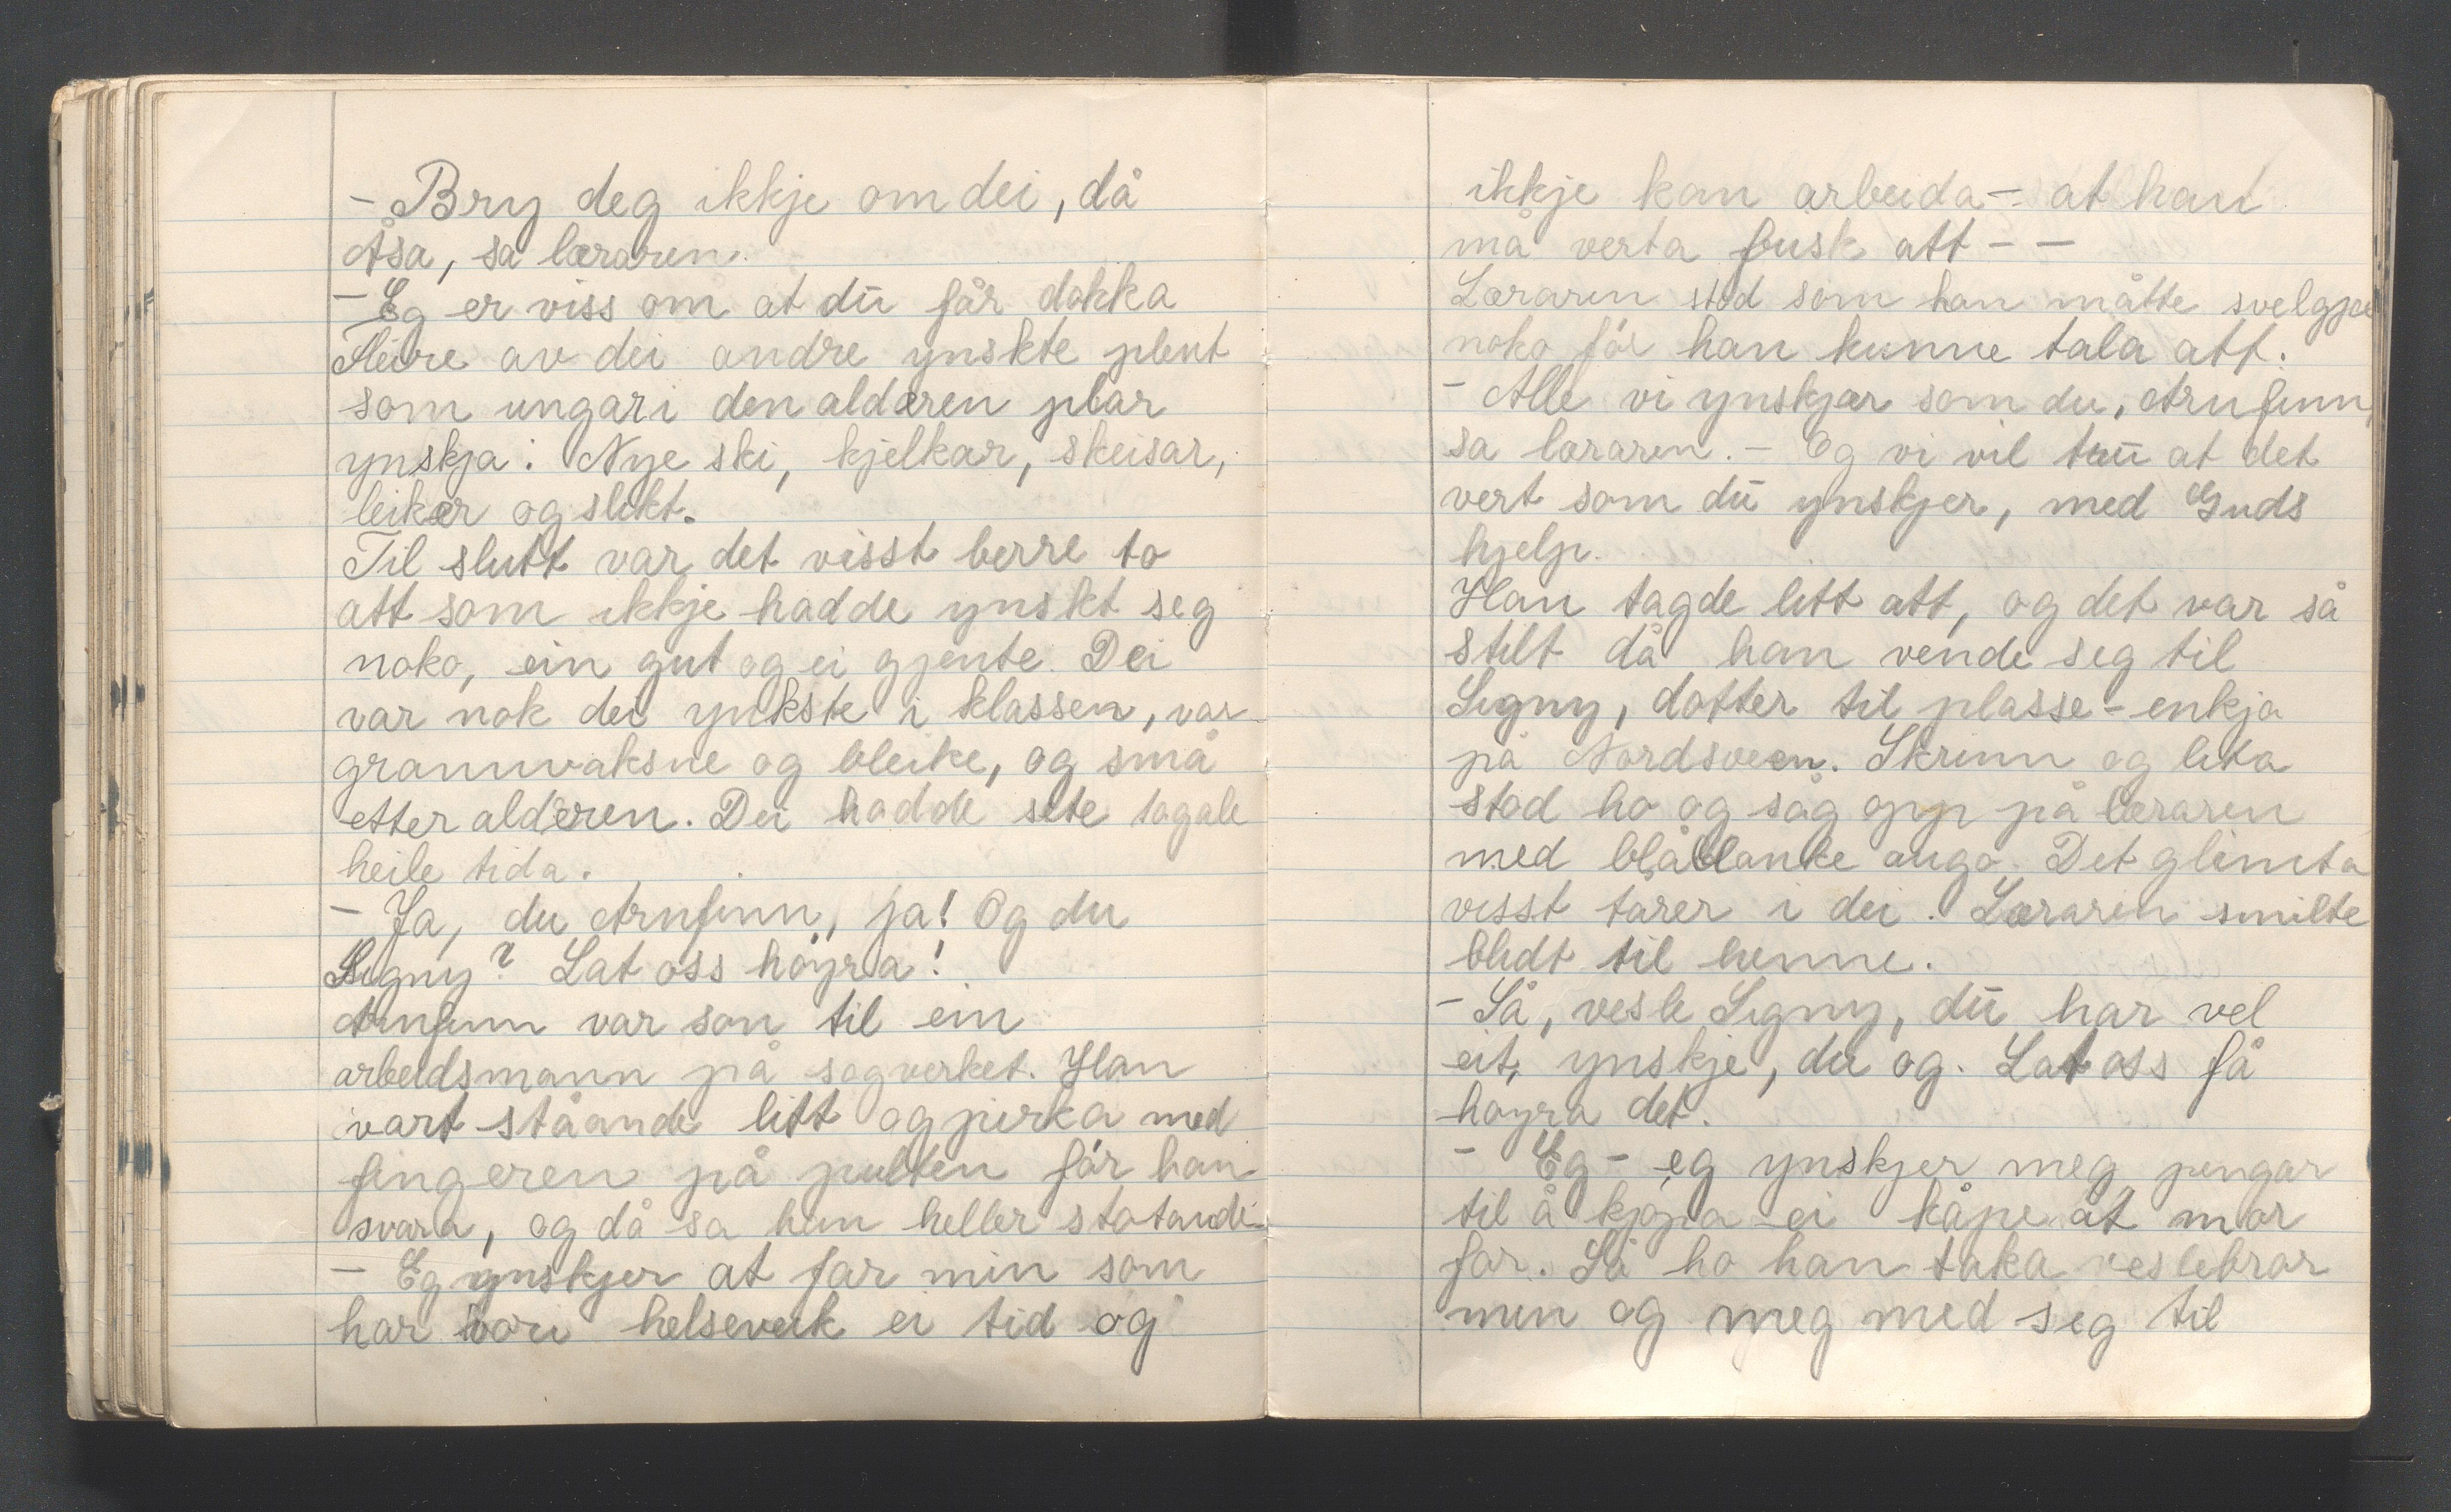 - Bry deg ikkje om dei, då
Åsa, sa læraren.
- Eg er viss om at du får dokka
Fleire av dei andre ynskte plent
som ungar i den alderen plar
ynskja: Nye ski, kjelkar, skeisar,
leiker og slikt.
Til slutt var det visst berre to
att som ikkje hadde ynskt seg
noko, ein gut og ei gjente. Dei
var nok dei ynkste i klassen, var
grannvaksne og bleike, og små
etter alderen. Dei hadde sete tagale
heile tida.
- Ja, du Arnfinn, ja! Og du
Signy? Lat oss høyra!
Arnfinn var son til ein
arbeidsmann på sagverket. Han
vart ståande litt og pirka med
fingeren på pulten før han
svara, og då sa han heller stotande
- Eg ynskjer at far min som
har vori helseveik ei tid og
ikkje kan arbeida - at han
må verta frisk att - -
Læraren stod som han måtte svelgje
noko før han kunne tala att.
- Alle vi ynskjer som du, Arnfinn,
sa læraren. - Og vi vil tru at det
vert som du ynskjer, med Guds
hjelp.
Han tagde litt att, og det var så
stilt då han vende seg til
Signy, dotter til plasse-enkja
på Nordsveen. Skrinn og lita
stod ho og såg opp på læraren
med blåblanke augo. Det glimta
visst tårer i dei. Læraren smilte
blidt til henne.
- Så, vesle Signy, du har vel
eit ynskje, du og. Lat oss få
høyra det.
- Eg - eg ynskjer meg pengar
til å kjøpa ei kåpe åt mor
for. Så ho kan taka veslebror
min og meg med seg til